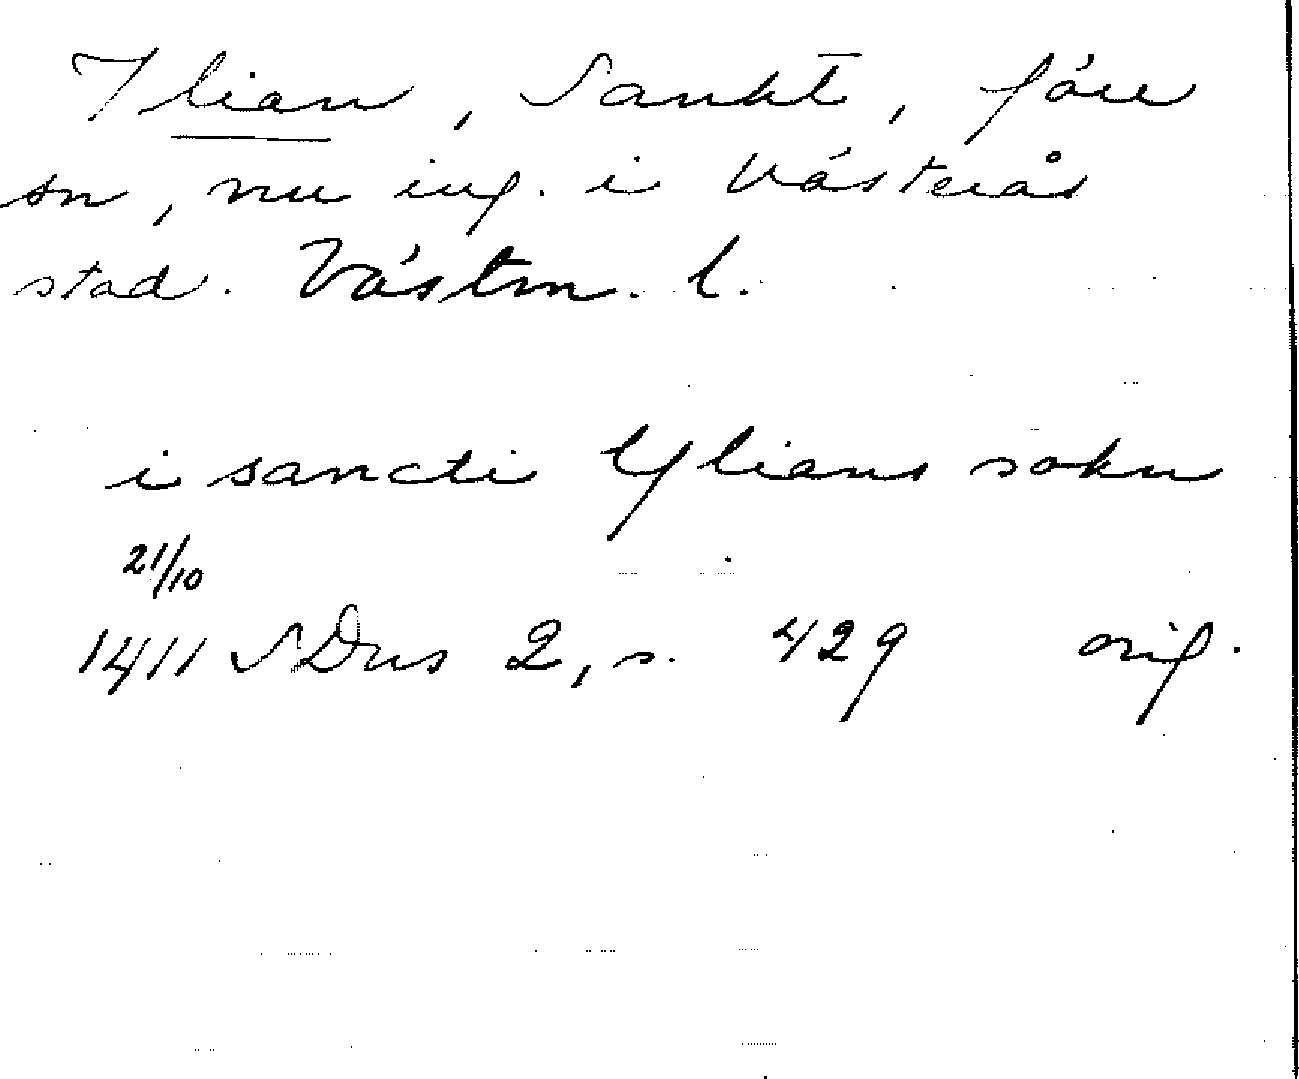 Ilian, Sankt, före
sn, nu ing. i Västerås
stad. Västm. l.
i sancti Ylians sokn
21/10
1411 SDns 2, s. 429 orig.